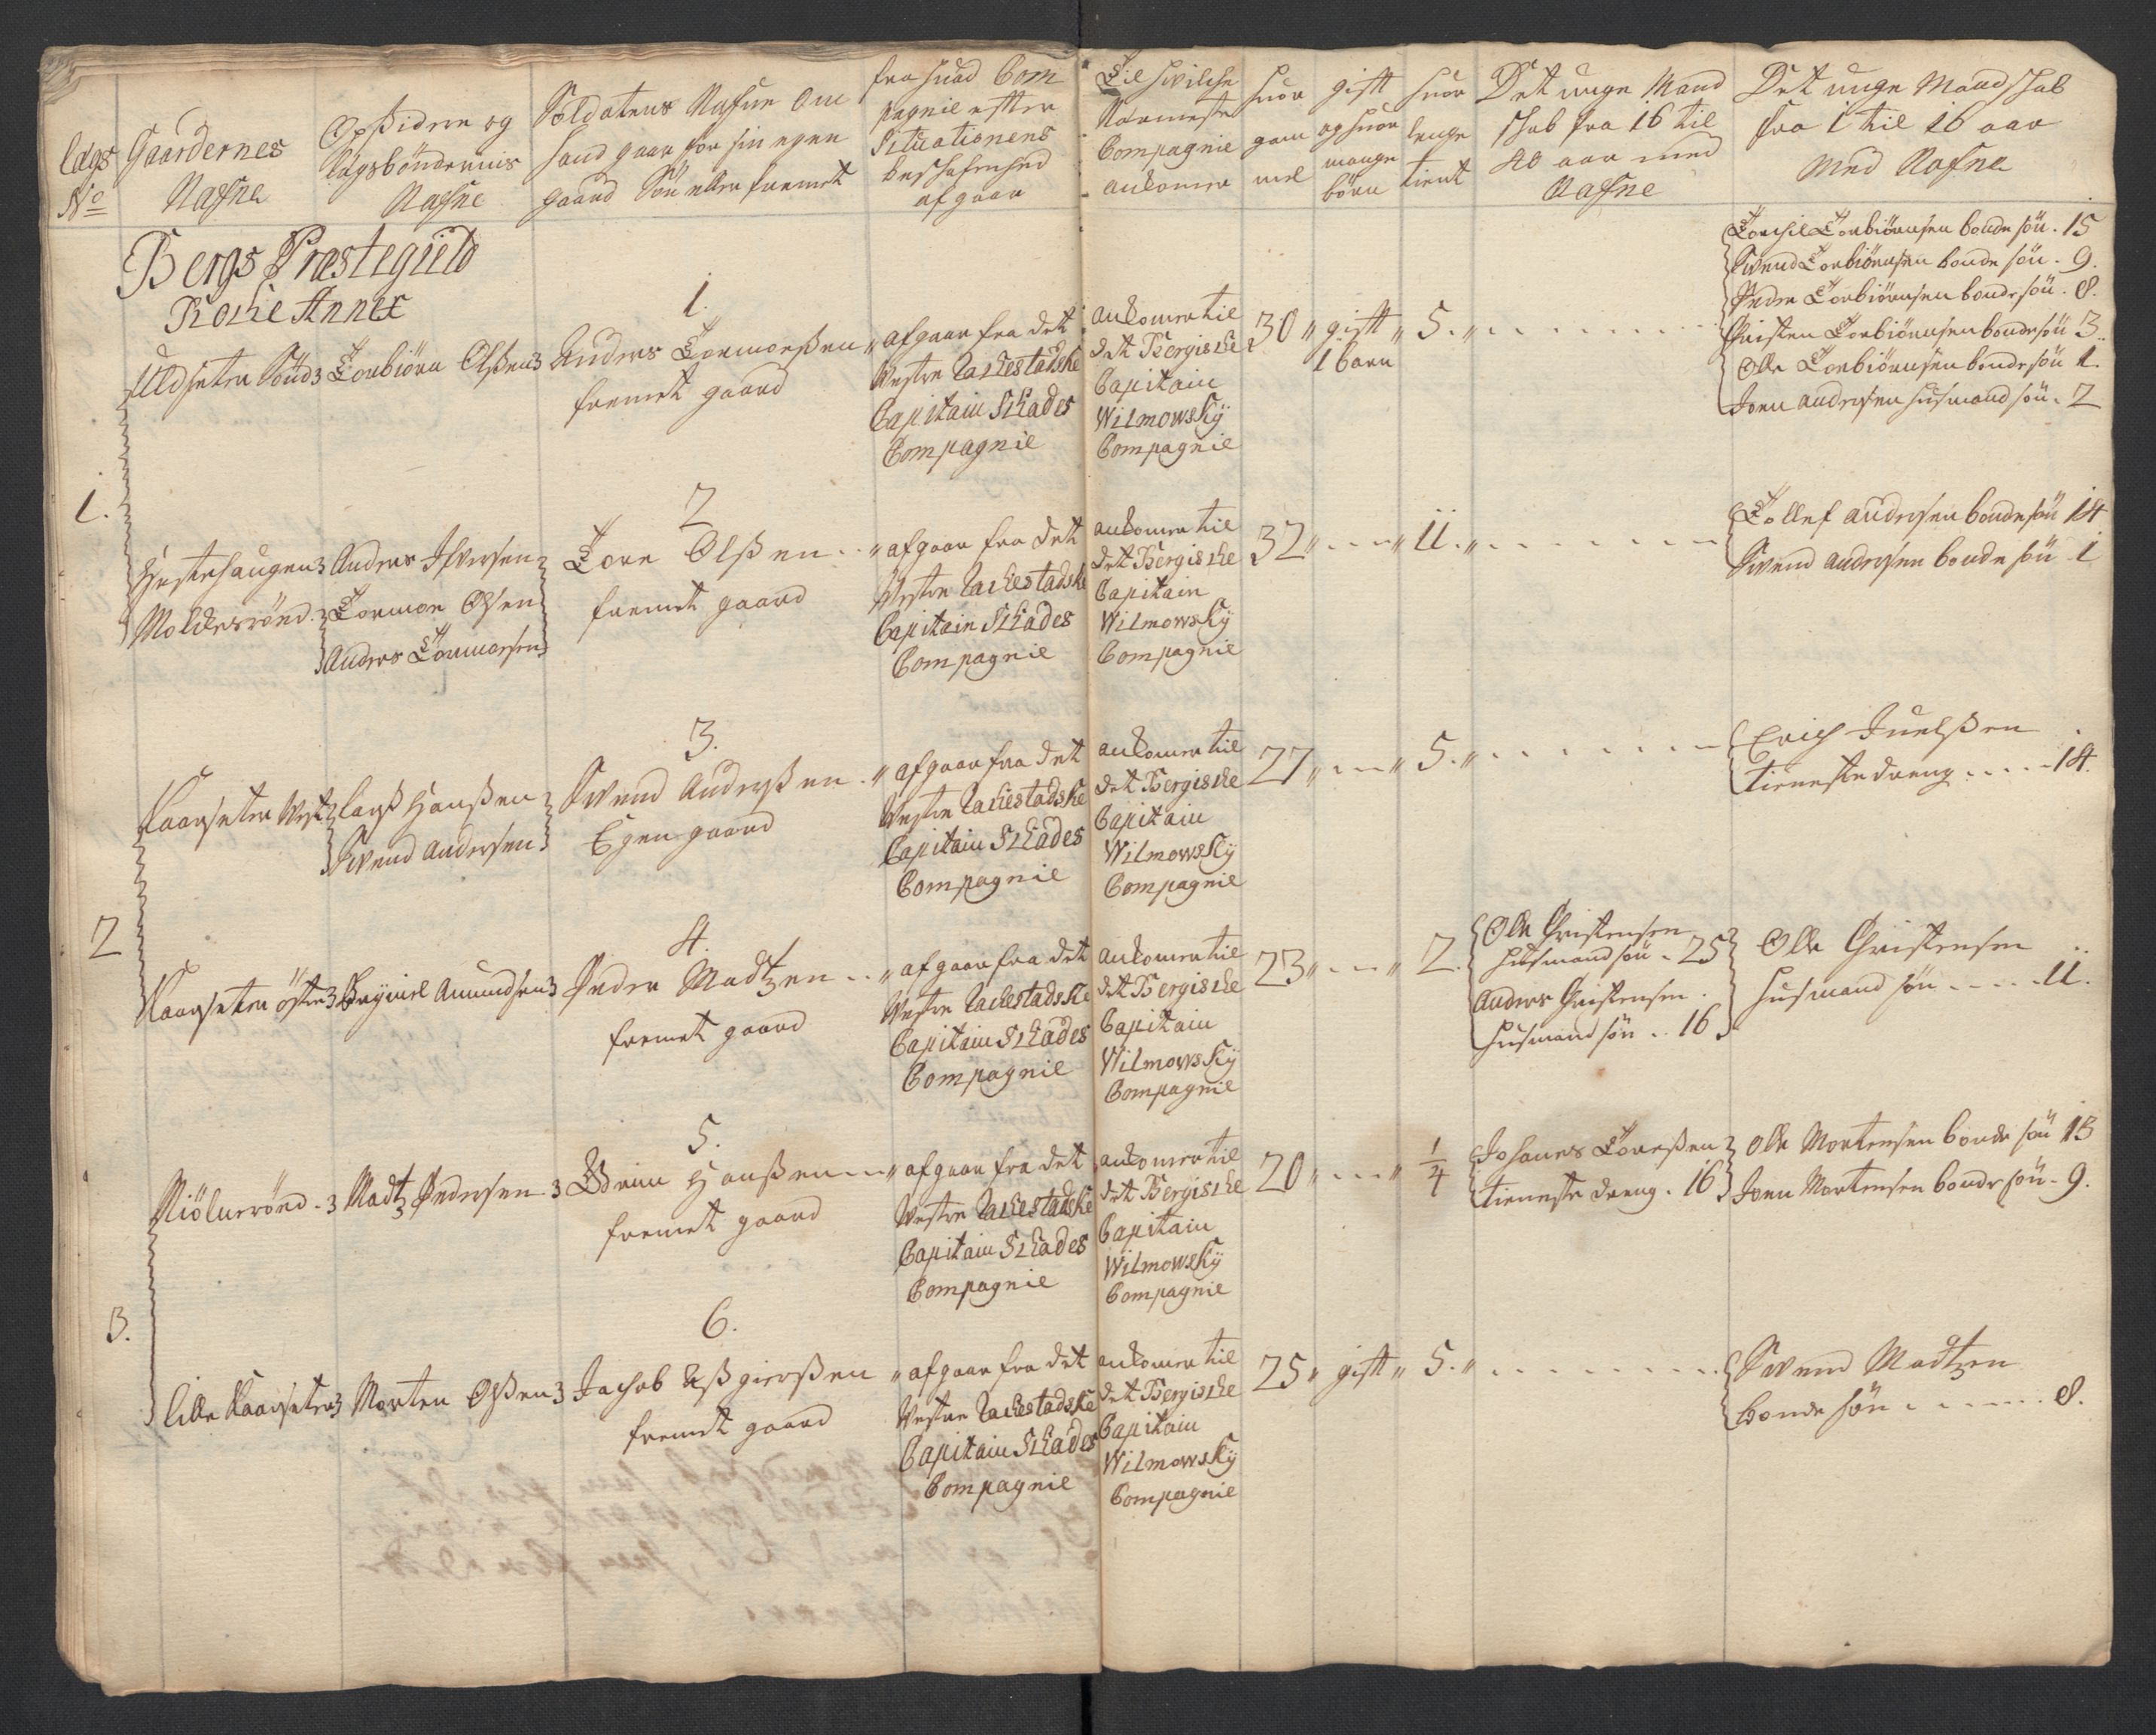 Lægs
No
Gaardernes
Nafne
Opsidere og
Lægsböndernis
Nafne
Soldatens Nafne Om
hand gaar for sin egen
gaard Sön eller fremet
fra huad Com
pagnie efter
Situationens
beschafenhed
afgaar
Til hvilche
Nærmeste
Compagnie
ankomer
huor
gam
mel
gift
og huor
mange
börn
huor
lenge
tient
Det unge Mand
schab fra 16 til
40 aar med
Nafne
Det unge Mandschab
fra 1 til 16 aar
Med Nafne
Bergs Præstegield
Rocke Annex
1.
1.
Uldseter Sönd
Torbiörn Olsen
Anders Tormorsen
fremet gaard
afgaar fra det
Westre Rackestadske
Capitain Schades
Compagnie
ankomer til
det Bergische
Capitain
Wilmowsky
Compagnie
30 gift 5.
1 barn
Torchil Torbiörnsen bonde sön . 15
Swend Torbiörnsen bonde sön . 9.
Peder Torbiörnsen bonde sön . 8.
Christen Torbiörnsen bondesön 3
Olle Torbiörnsen bondesön 1.
Joen Andersen husmand sön . 2
2
Hestehaugen
Anders Iversen
Molderröed
Tormoe Olsen
Anders Tormorsen
Tore Olssen
fremet gaard
afgaar fra det
Westre Rackestadske
Capitain Schades
Compagnie
ankomer til
det Bergische
Capitain
Wilmowsky
Compagnie
32 11.
Tollef Andersen bondesön 14
Swend Andersen bonde sön 1
2
3.
Kaarseter West
Lars Hanssen
Swend Andersen
Swend Anderssen
Egen gaard
afgaar fra det
Westre Rackestadske
Capitain Schades
Compagnie
ankomer til
det Bergische
Capitain
Wilmowsky
Compagnie
27 5.
Erich Juelssen
tieneste dreng . . . . 14.
4.
Kaarseter öster
Amundsen
Peder Madtzen
fremet gaard
afgaar fra det
Westre Rackestadske
Capitain Schades
Compagnie
ankomer til
det Bergische
Capitain
Wilmowsky
Compagnie
23 2.
Olle Christensen
husmand sön . 25
Anders Christensen .
husmand sön . . 16
Olle Christensen
husmand sön . . . . 11.
3.
5.
Madtz Pedersen
Hanssen
fremet gaard
afgaar fra det
Westre Rackestadske
Capitain Schades
Compagnie
ankomer til
det Bergische
Capitain
Wilmowsky
Compagnie
20 1/4
Johanes Toressen
tieneste dreng . 16
Olle Mortensen bonde sön 13
Joen Mortensen bonde sön . 9.
6.
Lille Kaarseter
Morten Olssen
Jachob Assgierssen
fremet gaard
afgaar fra det
Westre Rackestadske
Capitain Schades
Compagnie
ankomer til
det Bergische
Capitain
Wilmowsky
Compagnie
25 gift 5.
Swend Madtzen
bonde sön . . . . . 8.